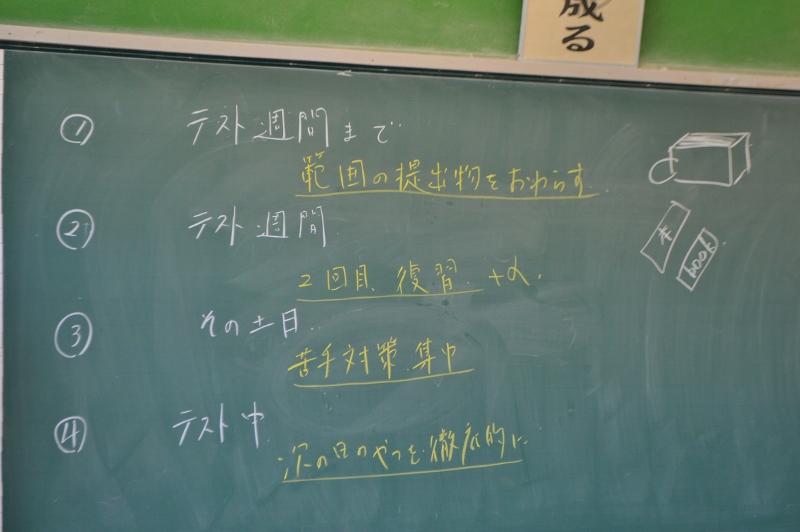 成る
① テスト週間まで
範囲の提出物をおわらす
② テスト週間
2回目 復習 +α.
③ その土日
苦手対策 集中
④ テスト中
次の日のやつを徹底的に
本
book